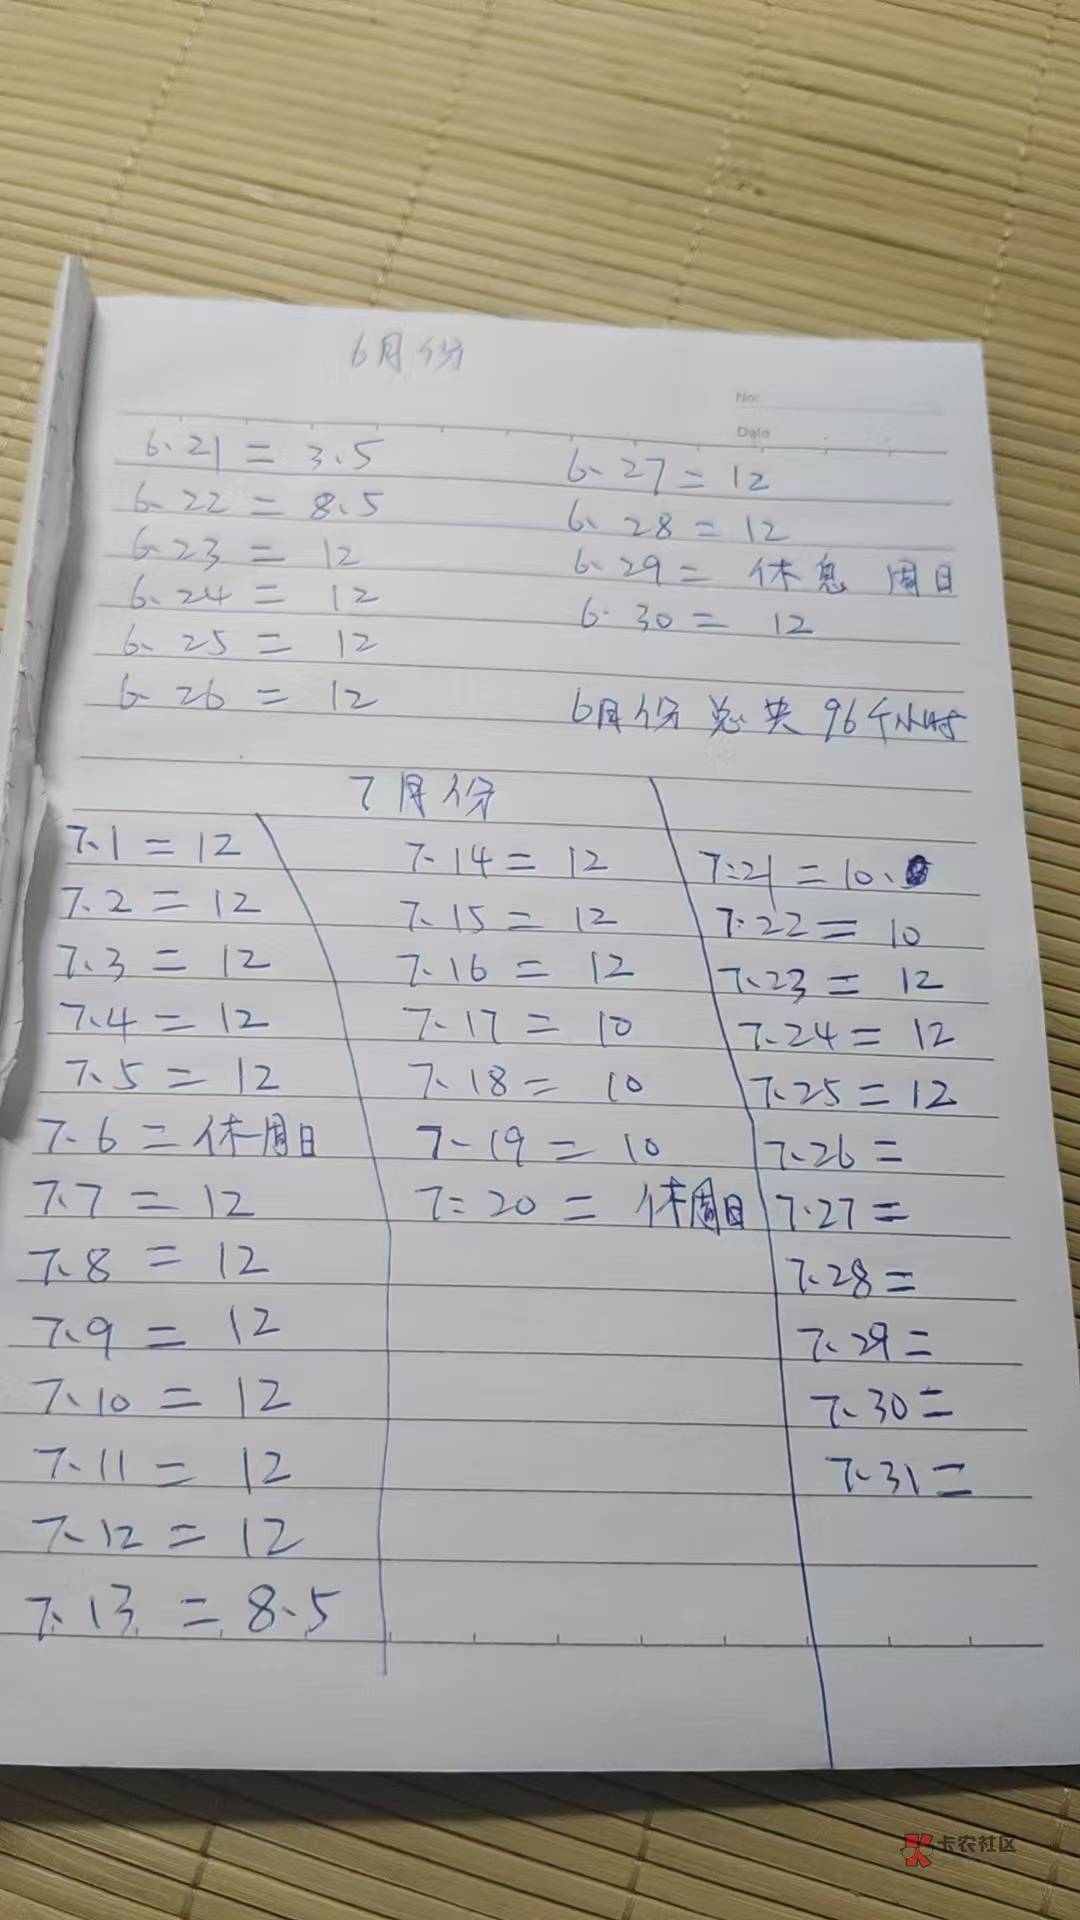 6月份
No:
Date
6、21 = 3、5
6、22 = 8、5
6、23 = 12
6、24 = 12
6、25 = 12
6、26 = 12
6、27 = 12
6、28 = 12
6、29 = 休息 周日
6、30 = 12
6月份总共96个小时
7月份
7、1 = 12
7、2 = 12
7、3 = 12
7、4 = 12
7、5 = 12
7、6 = 休周日
7、7 = 12
7、8 = 12
7、9 = 12
7、10 = 12
7、11 = 12
7、12 = 12
7、13 = 8、5
7、14 = 12
7、15 = 12
7、16 = 12
7、17 = 10
7、18 = 10
7、19 = 10
7、20 = 休周日
7、21 = 10、
7、22 = 10
7、23 = 12
7、24 = 12
7、25 = 12
7、26 =
7、27 =
7、28 =
7、29 =
7、30 =
7、31 =
卡农社区